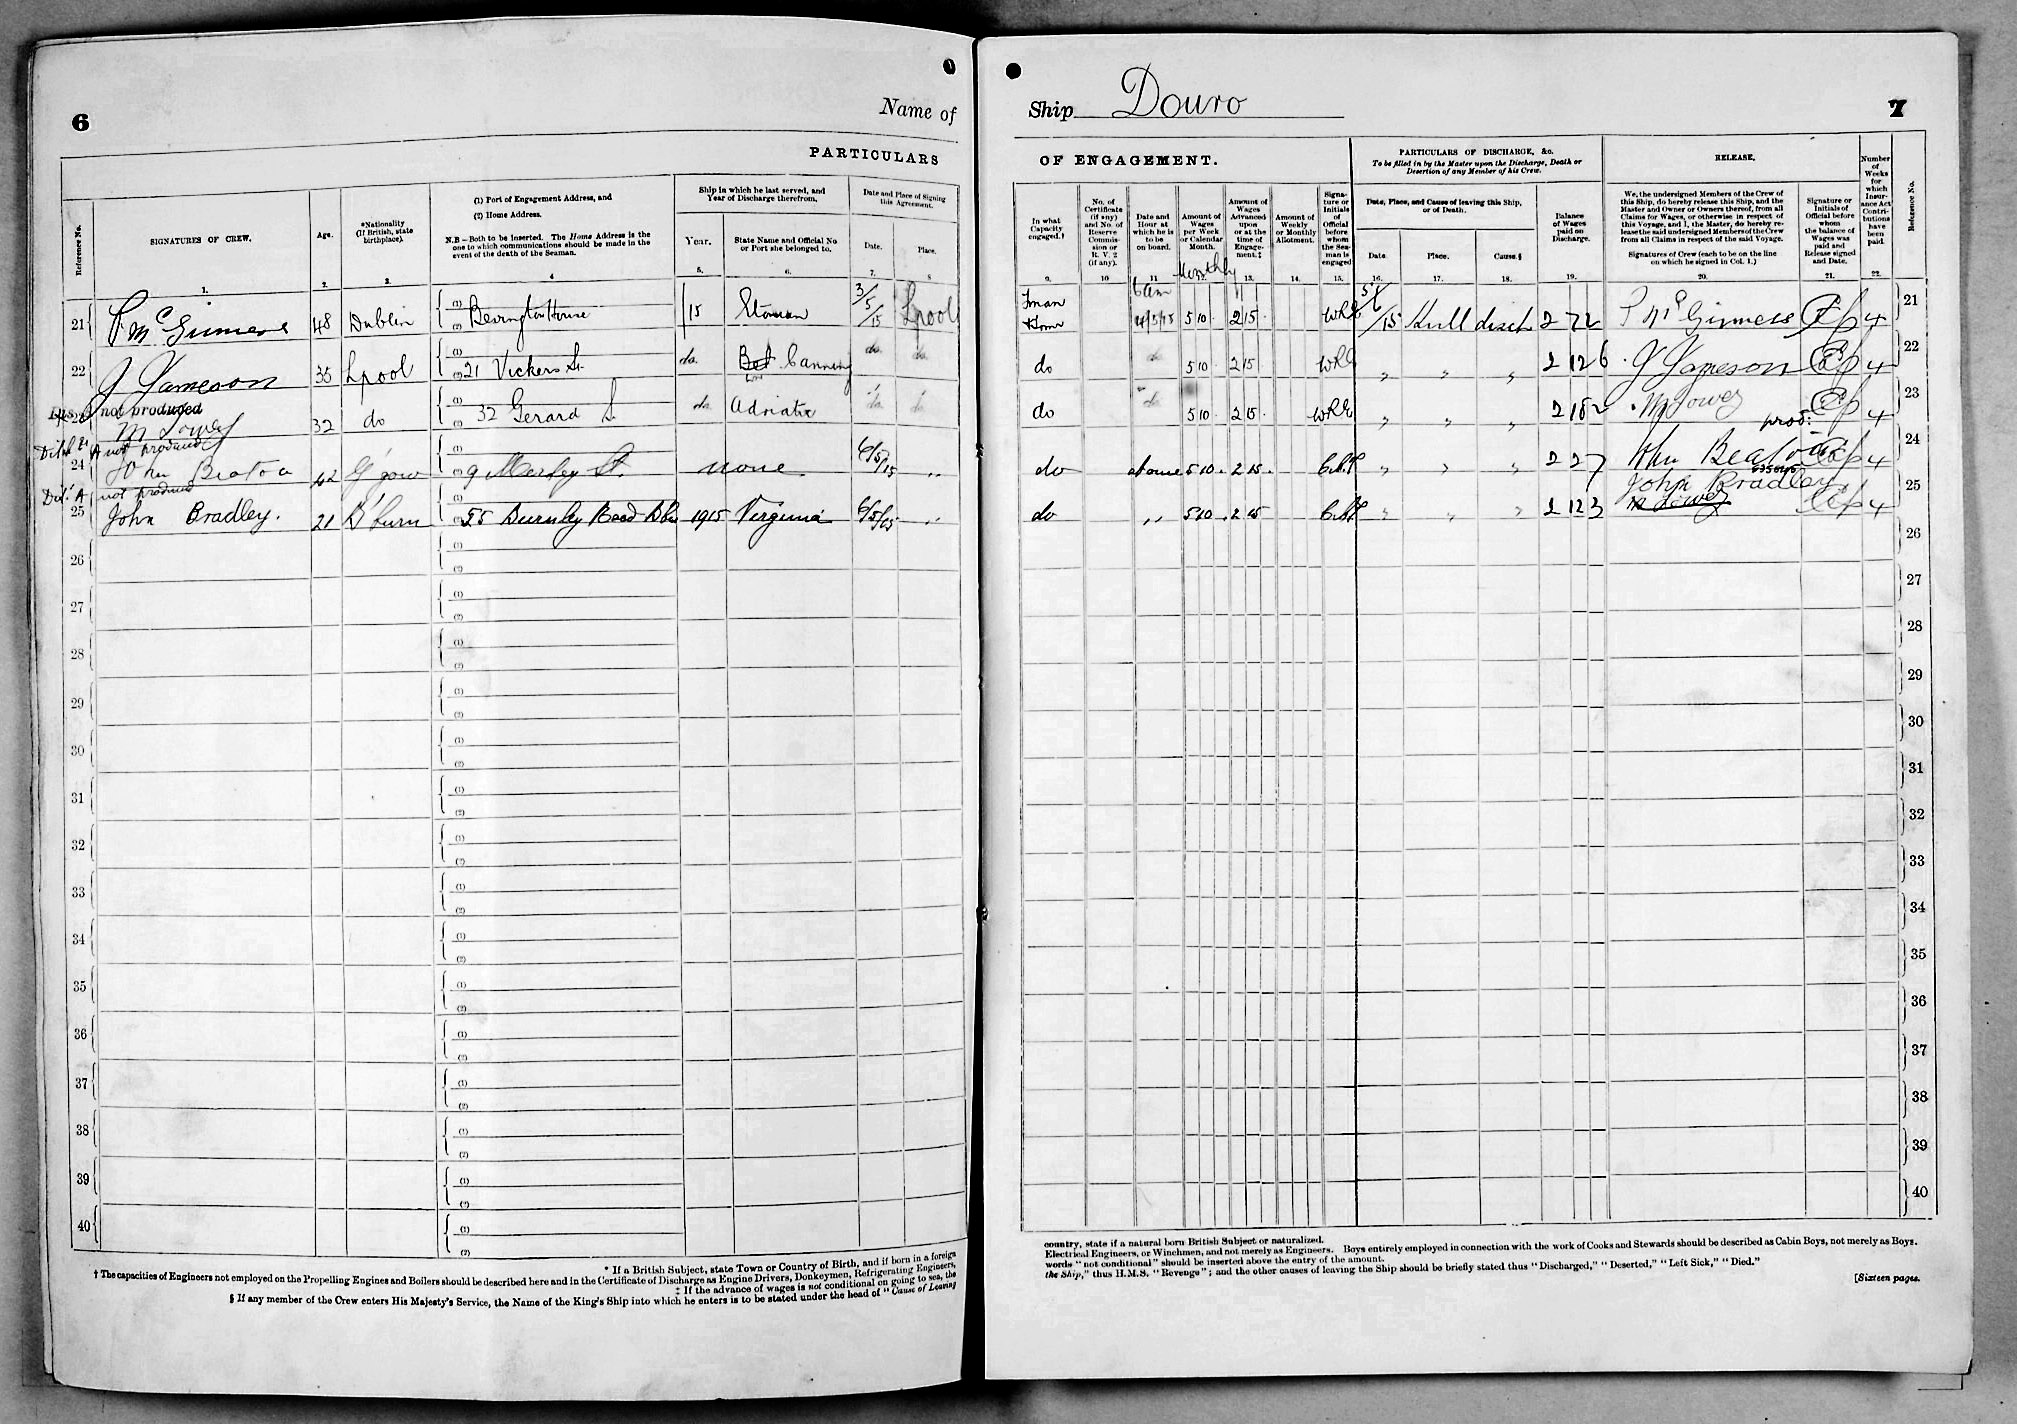 6
Name of
PARTICULARS
Reference No.
SIGNATURES OF CREW.
Age.
*Nationality (If British, state birthplace).
(1) Port of Engagement Address, and
(2) Home Address.
N.B – Both to be inserted. The Home Address is the one to which communications should be made in the event of the death of the Seaman.
Ship in which he last served, and Year of Discharge therefrom.
Year.
State Name and Official No or Port she belonged to.
Date and Place of Signing this Agreement.
Date.
Place.
1. 2. 3. 4 5. 6. 7. 8
21 P McGinness 48 Dublin (1) (2) Bevington House 15 3/5/15 Lpool
22 J Jameson 35 Lpool (1) (2) 21 Vickers St. do. Canning do. do.
not produced
23 M Lowey 32 do (1) (2) 32 Gerard St do Adriatic do. do
Dis. A not produced
24 John Beaton 42 G'gow (1) (2) 9 Morley St. none 6/5/15 "
Dis. A not produced
25 John Bradley. 21 B'burn (1) (2) 55 Burnley Road 1915 Virginia 6/5/15 "
26 (1) (2)
27 (1) (2)
28 (1) (2)
29 (1) (2)
30 (1) (2)
31 (1) (2)
32 (1) (2)
33 (1) (2)
34 (1) (2)
35 (1) (2)
36 (1) (2)
37 (1) (2)
38 (1) (2)
39 (1) (2)
40 (1) (2)
* If a British Subject, state Town or Country of Birth, and if born in a foreign
† The capacities of Engineers not employed on the Propelling Engines and Boilers should be described here and in the Certificate of Discharge as Engine Drivers, Donkeymen, Refrigerating Engineers,
‡ If the advance of wages is not conditional on going to sea, the
§ If any member of the Crew enters His Majesty's Service, the Name of the King's Ship into which he enters is to be stated under the head of "Cause of Leaving
Ship Douro
7
OF ENGAGEMENT.
PARTICULARS OF DISCHARGE, &c.
To be filled in by the Master upon the Discharge, Death or Desertion of any Member of his Crew.
RELEASE.
In what Capacity engaged.†
No. of Certificate (if any) and No. of Reserve Commission or R. V. 2 (if any).
Date and Hour at which he is to be on board.
Amount of Wages per Week or Calendar Month.
Monthly
Amount of Wages Advanced upon or at the time of Engagement.‡
Amount of Weekly or Monthly Allotment.
Signature or Initials of Official before whom the Seaman is engaged
Date, Place, and Cause of leaving this Ship, or of Death.
Date.
Place.
Cause.§
Balance of Wages paid on Discharge.
We, the undersigned Members of the Crew of this Ship, do hereby release this Ship, and the Master and Owner or Owners thereof, from all Claims for Wages, or otherwise in respect of this Voyage, and I, the Master, do hereby release the said undersigned Members of the Crew from all Claims in respect of the said Voyage.
Signatures of Crew (each to be on the line on which he signed in Col. 1.)
Signature or Initials of Official before whom the balance of Wages was paid and Release signed and Date.
Number of Weeks for which Insurance Act Contributions have been paid.
Reference No.
9. 10 11 12. 13. 14. 15. 16. 17. 18. 19. 20. 21. 22.
6am
Fman 4/5/15 5 10 2 15 WRE 5/6/15 Hull disch 2 7 2 P McGinness 4 21
do do 5 10 2 15 WRE " " " 2 12 6 J Jameson 4 22
do do 5 10 2 15 WRE " " " 2 18 2 M Lowey 4 23
prod.
do at once 5 10 2 15 " " " 2 2 7 John Beaton 4 24
John Bradley
do " 5 10 2 15 " " " 2 12 3 M Lowey 4 25
26
27
28
29
30
31
32
33
34
35
36
37
38
39
40
country, state if a natural born British Subject or naturalized.
Electrical Engineers, or Winchmen, and not merely as Engineers. Boys entirely employed in connection with the work of Cooks and Stewards should be described as Cabin Boys, not merely as Boys.
words "not conditional" should be inserted above the entry of the amount.
the Ship," thus H.M.S. "Revenge"; and the other causes of leaving the Ship should be briefly stated thus "Discharged," "Deserted," "Left Sick," "Died."
[Sixteen pages.